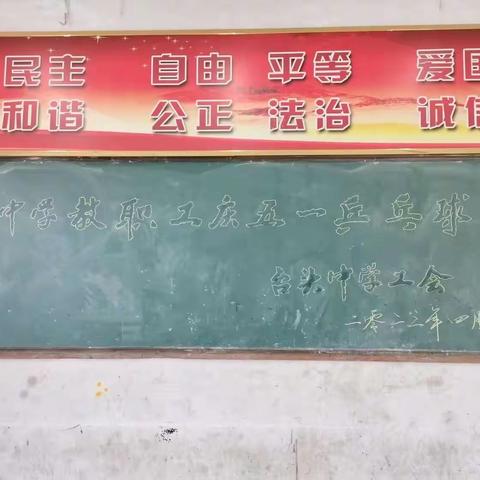 民主 自由 平等 爱国
和谐 公正 法治 诚信
中学教职工庆五一乒乓球
台头中学工会
二零二三年四月